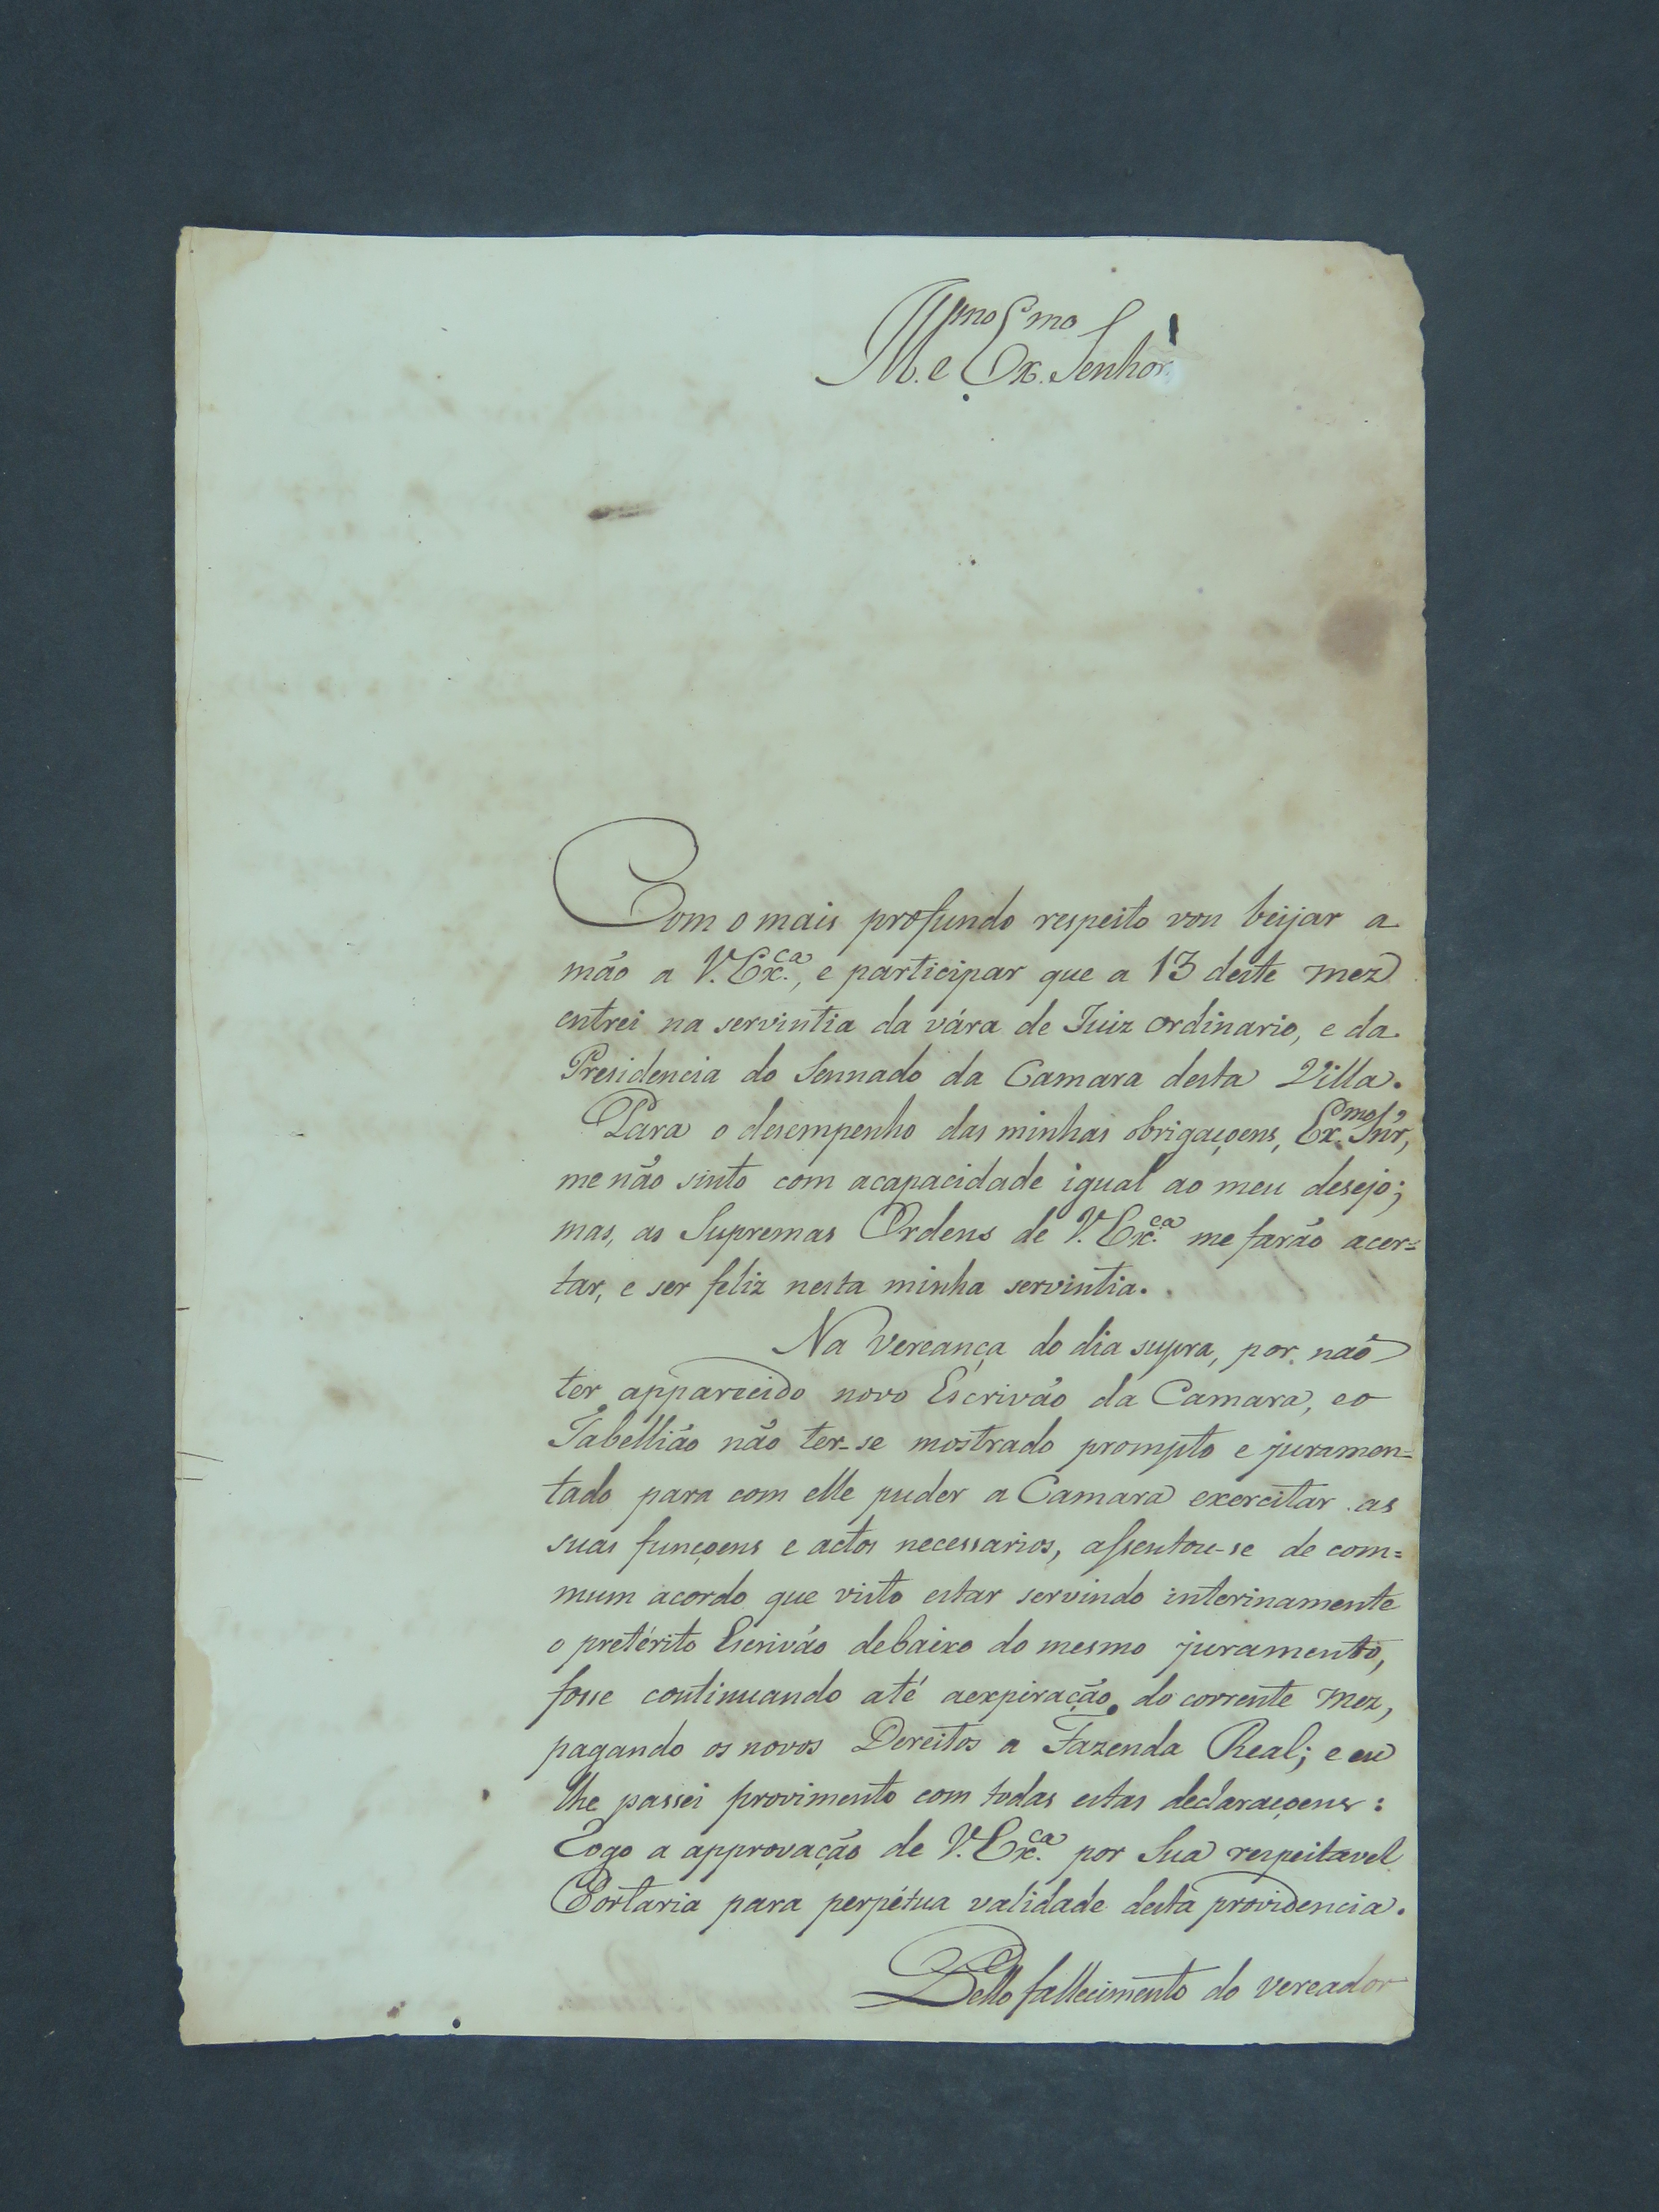 Ill.mo e Ex.mo Senhor
Com o mais profundo respeito vou beijar a
mão a V. Ex.ca, e participar que a 13 deste mez
entrei na servintia da vára de Juiz ordinario, e da
Presidencia do Sennado da Camara desta Villa.
Para o desempenho das minhas obrigaçoens, Ex.mo Snr,
me não sinto com acapacidade igual ao meu desejo;
mas, as Supremas Ordens de V. Ex.ca me farão acer=
tar, e ser feliz nesta minha servintia.
Na Vereança do dia supra, por naõ
ter apparecido novo Escrivão da Camara, eo
Tabellião não ter-se mostrado prompto e juramen=
tado para com elle puder a Camara exercitar as
suas funçoens e actos necessarios, assentou-se de com=
mum acordo que visto estar servindo interinamente
o pretérito Escrivão debaixo do mesmo juramento,
fosse continuando até aexpiração do corrente mez,
pagando os novos Dereitos a Fazenda Real; e eu
lhe passei provimento com todas estas declaraçoens:
Rogo a approvação de V. Ex.ca por Sua respeitavel
Portaria para perpétua validade desta providencia.
Pello fallecimento do vereador